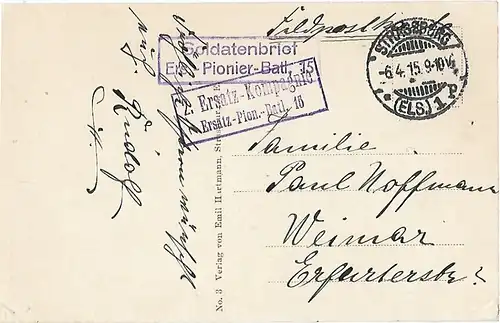 Feldpostkarte
Soldatenbrief
Ers. Pionier-Batl. 15
2. Ersatz-Kompagnie
Ersatz-Pion.-Batl. 15
STRASSBURG
-6.4.15.9-10V.
* (ELS.) 1 P
Familie
Paul Hoffmann
Weimar
Erfurterstr.
No. 3 Verlag von Emil Hartmann,
wünscht
Rudolf